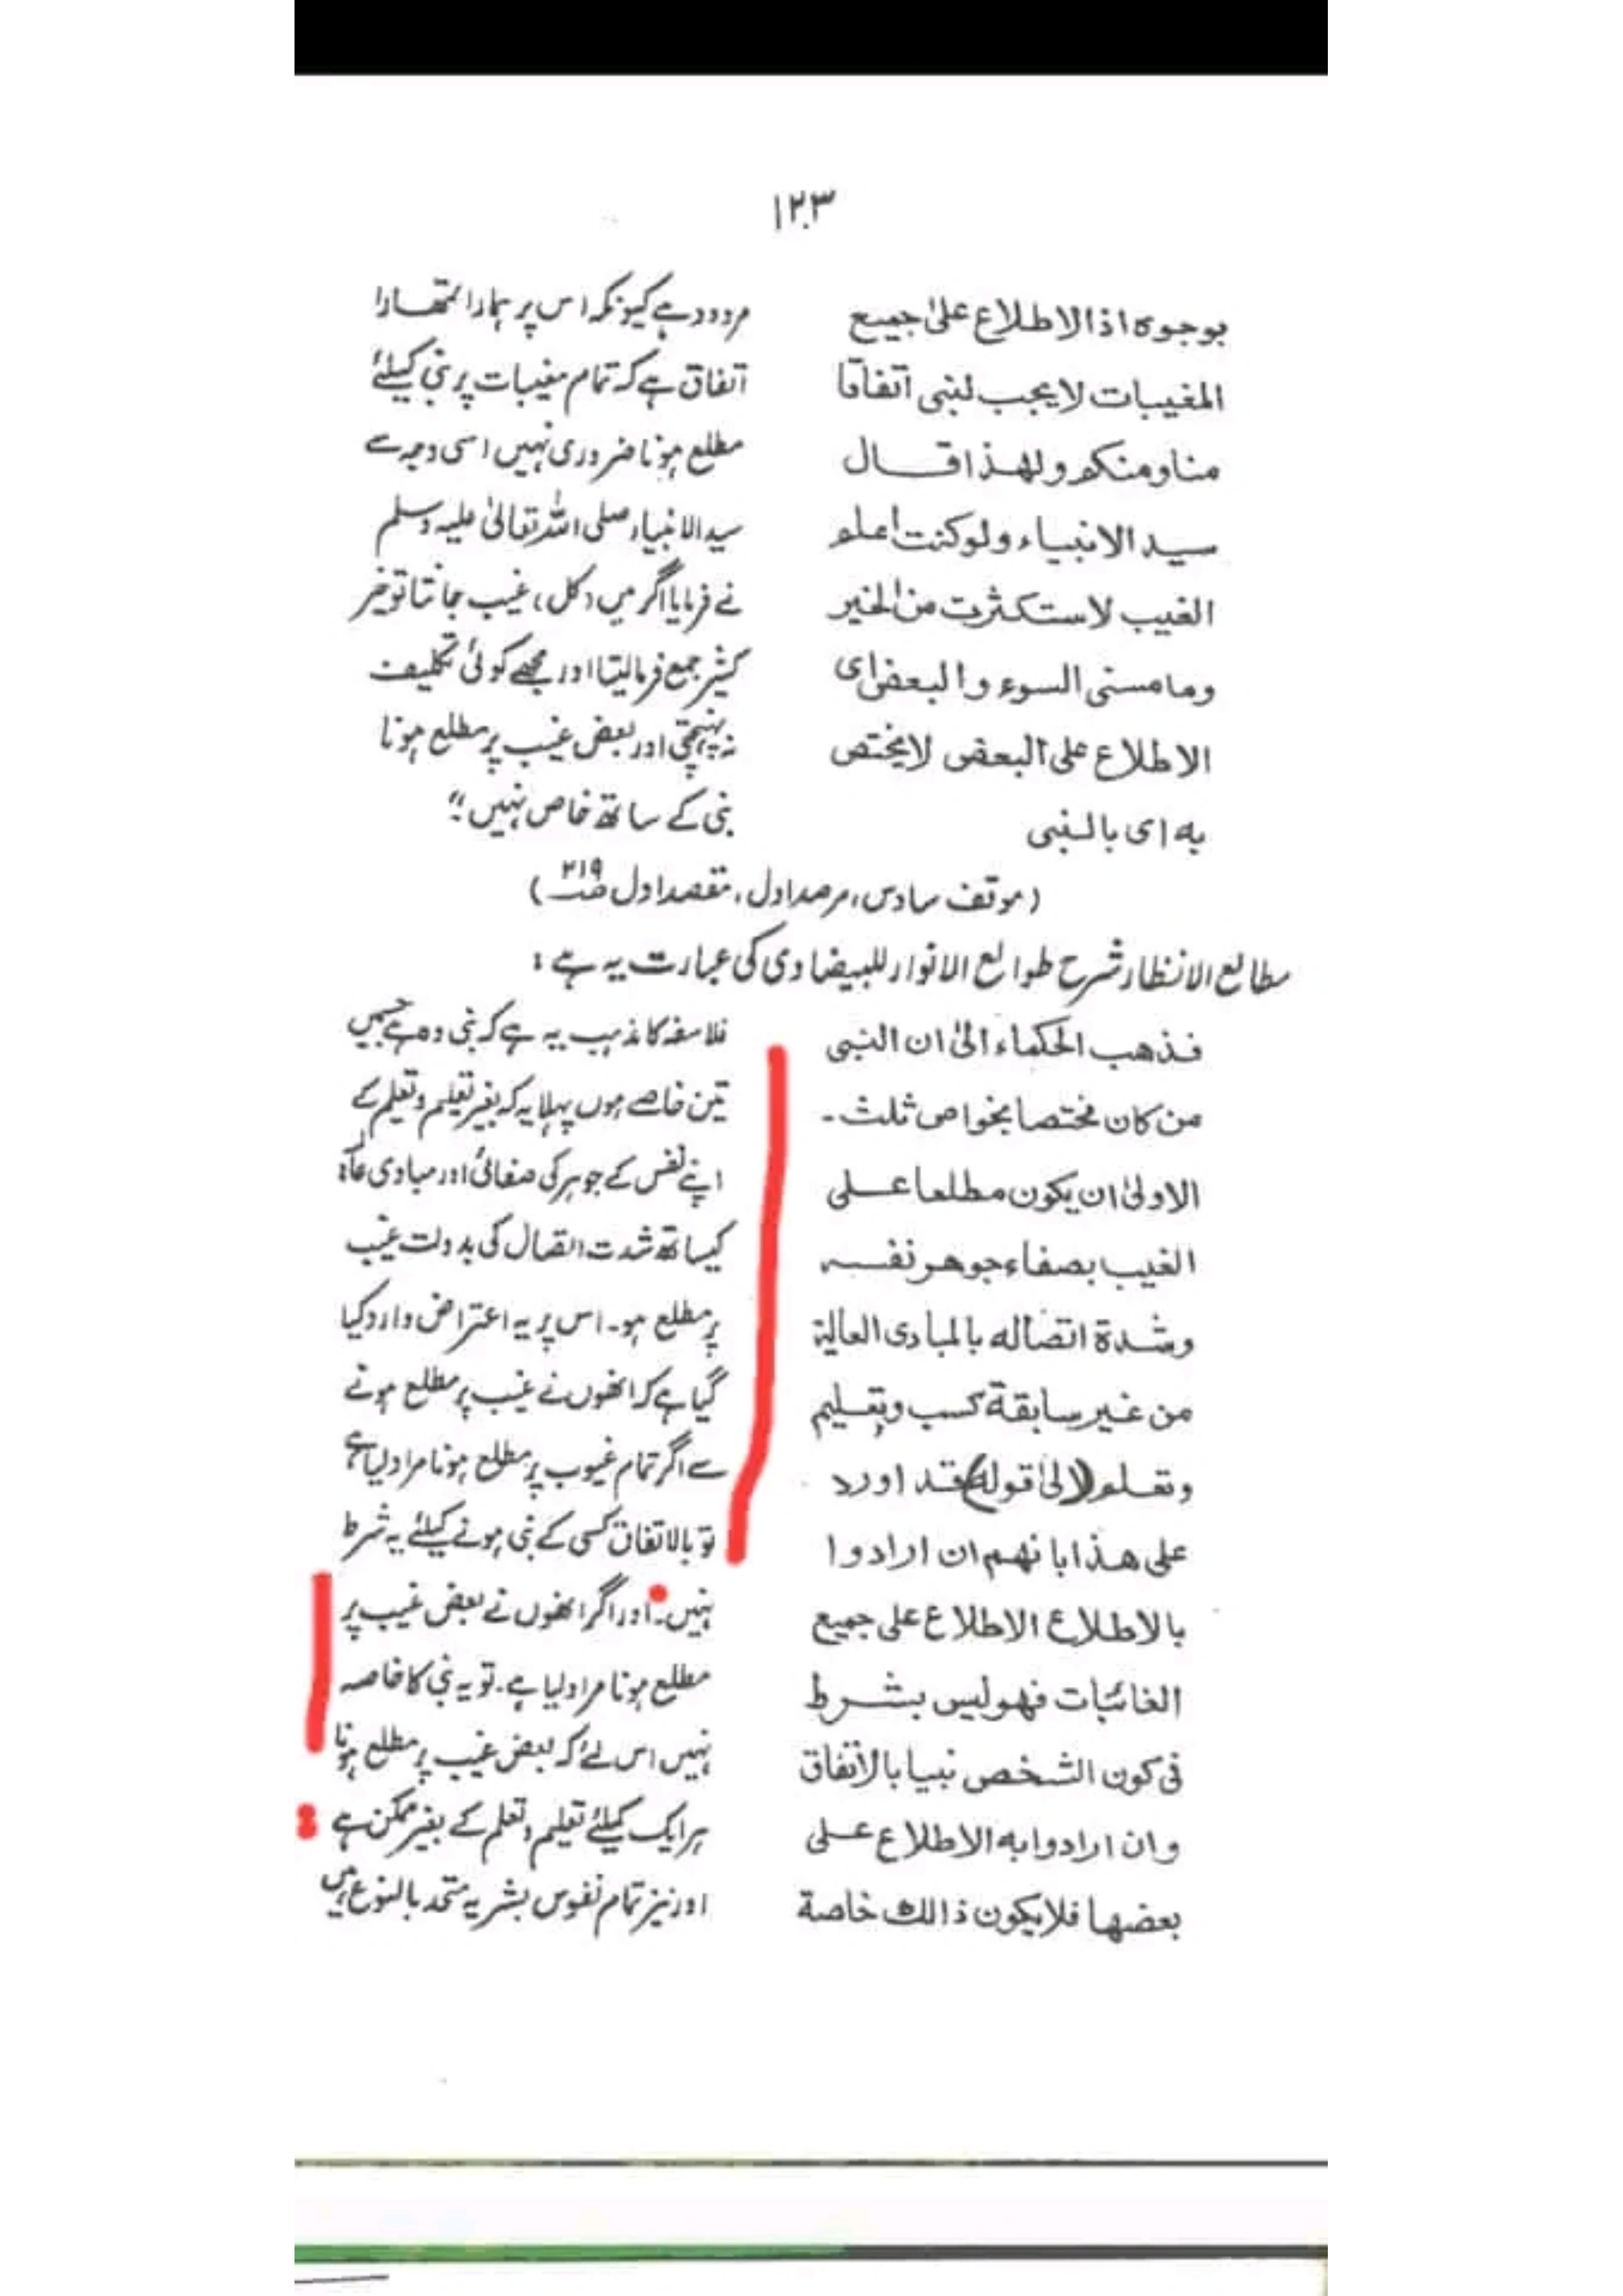 ۱۲۳
بوجوہ اذ الاطلاع علیٰ جمیع
المغیبات لایجب لنبی اتفاقا
منا ومنکم ولھذا قال
سید الانبیاء ولوکنت اعلم
الغیب لاستکثرت من الخیر
وما مسنی السوء والبعض ای
الاطلاع علی البعض لایختص
به ای بالنبی
مردود ہے کیونکہ اس پر ہمارا تمھارا
اتفاق ہے کہ تمام مغیبات پر نبی کیلئے
مطلع ہونا ضروری نہیں اسی وجہ سے
سید الانبیاء صلی اللہ تعالیٰ علیہ وسلم
نے فرمایا اگر میں (کل) غیب جانتا تو خیر
کثیر جمع فرمالیتا اور مجھے کوئی تکلیف
نہ پہنچتی اور بعض غیب پر مطلع ہونا
نبی کے ساتھ خاص نہیں "
(موقف سادس، مرصد اول، مقصد اول ص ۲۱۹)
مطالع الانظار شرح طوالع الانوار للبیضاوی کی عبارت یہ ہے :
فذھب الحکماء الیٰ ان النبی
من کان مختصا بخواص ثلث ۔
الاولیٰ ان یکون مطلعا علی
الغیب بصفاء جوھر نفسه
وشدة اتصاله بالمبادی العالیة
من غیر سابقة کسب وتعلیم
وتعلم (الیٰ قوله) قد اورد
علی ھذا بانھم ان ارادوا
بالاطلاع الاطلاع علی جمیع
الغائبات فھو لیس بشرط
فی کون الشخص نبیا بالاتفاق
وان ارادوا به الاطلاع علی
بعضھا فلایکون ذالك خاصة
فلاسفہ کا مذہب یہ ہے کہ نبی وہ ہے جسمیں
تین خاصے ہوں پہلا یہ کہ بغیر تعلیم و تعلم کے
اپنے نفس کے جوہر کی صفائی اور مبادی عالیہ
کیساتھ شدت اتصال کی بدولت غیب
پر مطلع ہو۔ اس پر یہ اعتراض وارد کیا
گیا ہے کہ انھوں نے غیب پر مطلع ہونے
سے اگر تمام غیوب پر مطلع ہونا مراد لیا ہے
تو بالاتفاق کسی کے نبی ہونے کیلئے یہ شرط
نہیں ۔ اور اگر انھوں نے بعض غیب پر
مطلع ہونا مراد لیا ہے۔ تو یہ نبی کا خاصہ
نہیں اس لئے کہ بعض غیب پر مطلع ہونا
ہر ایک کیلئے تعلیم و تعلم کے بغیر ممکن ہے
اور نیز تمام نفوس بشریہ متحد بالنوع ہیں